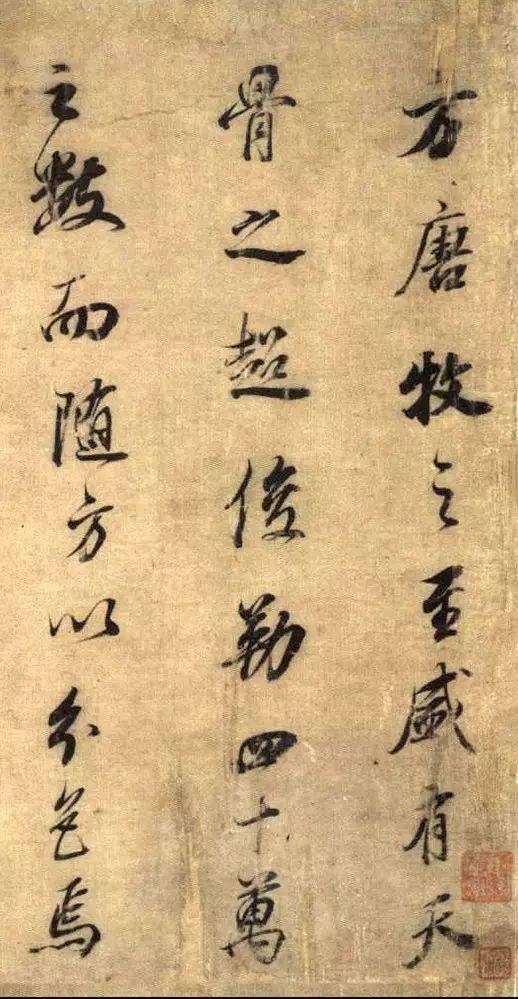 方唐牧之至盛有天
骨之超俊勒四十萬
之數而随方以分色焉